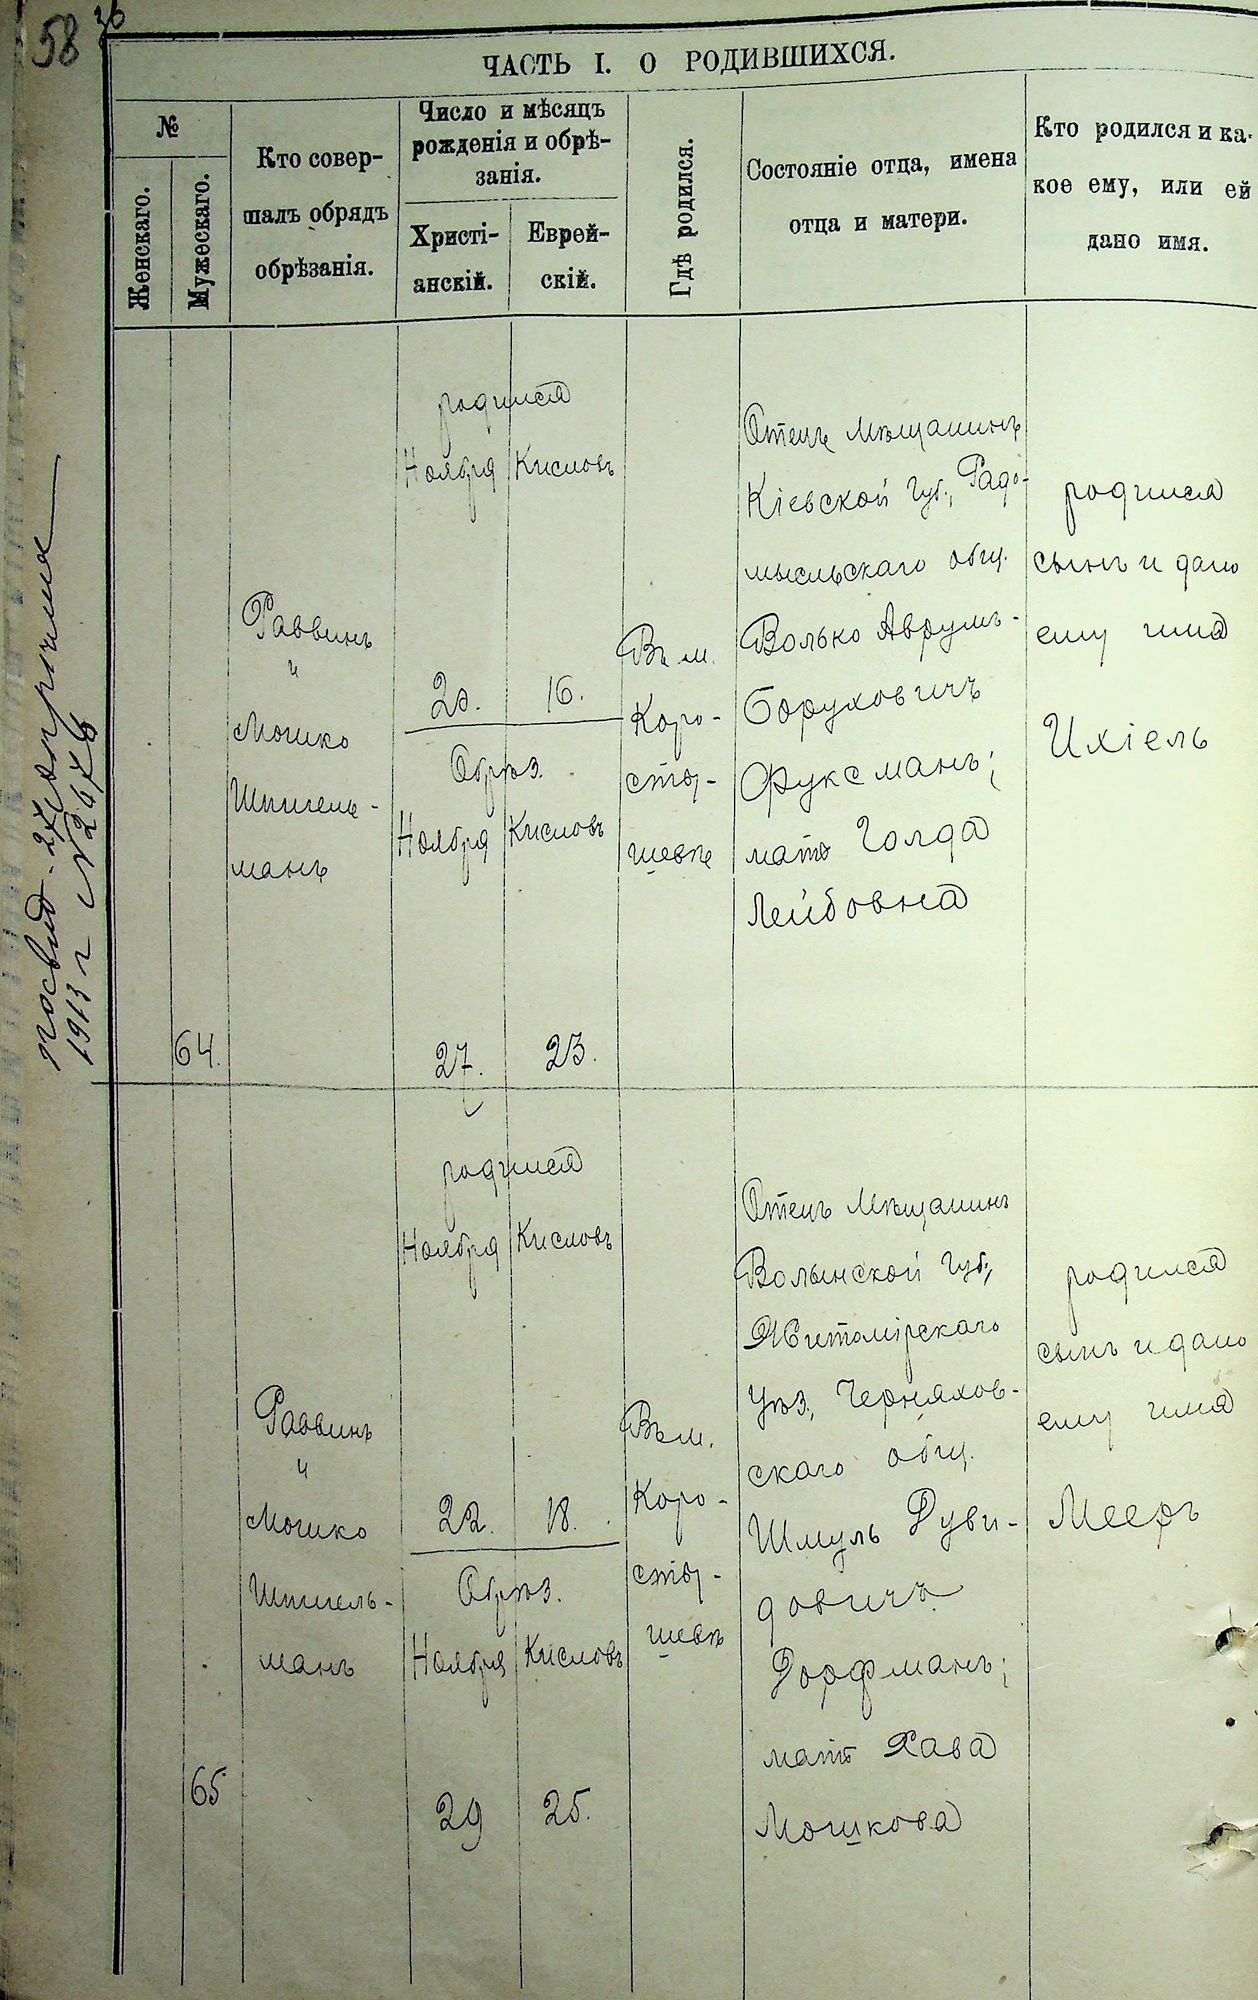 58
ЧАСТЬ I. О РОДИВШИХСЯ.
№
Женскаго.
Мужескаго.
Кто совер-
шалъ обрядъ
обрѣзанія.
Число и мѣсяцъ
рожденія и обрѣ-
занія.
Христі-
анскій.
Еврей-
скій.
Гдѣ родился.
Состояніе отца, имена
отца и матери.
Кто родился и ка-
кое ему, или ей
дано имя.
64.
Раввинъ
и
Мошко
Шпигель-
манъ
родился
Ноября Кисловъ
20. 16.
Обрѣз.
Ноября Кисловъ
27. 23.
Въ м.
Коро-
сты-
шевѣ
Отецъ Мѣщанинъ
Кіевской губ., Радо-
мысльскаго общ.
Волько Аврумъ-
Боруховичъ
Фуксманъ;
мать Голда
Лейбовна
родился
сынъ и дано
ему имя
Ихіель
1913 г №2676
65
Раввинъ
и
Мошко
Шпигель-
манъ
родился
Ноября Кисловъ
22. 18.
Обрѣз.
Ноября Кисловъ
29 25.
Въ м.
Коро-
сты-
шевѣ
Отецъ Мѣщанинъ
Волынской губ.,
Житомірскаго
уѣз., Черняхов-
скаго общ.
Шмуль Дуви-
довичъ
Дорфманъ;
мать Хава
Мошкова
родился
сынъ и дано
ему имя
Мееръ